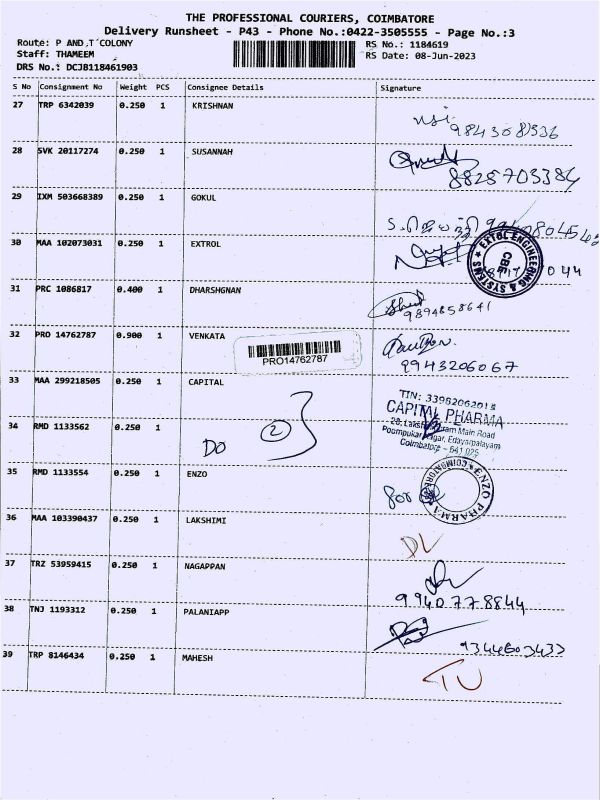 THE PROFESSIONAL COURIERS, COIMBATORE
Delivery Runsheet - P43 - Phone No.:0422-3505555 - Page No.:3
Route: P AND,T COLONY
Staff: THAMEEM
DRS No.: DCJB118461903
RS No.: 1184619
RS Date: 08-Jun-2023
S No Consignment No Weight PCS Consignee Details Signature
27 TRP 6342039 0.250 1 KRISHNAN
28 SVK 20117274 0.250 1 SUSANNAH
8825703384
29 IXM 503668389 0.250 1 GOKUL
30 MAA 102073031 0.250 1 EXTROL
EXTOL ENGINEERING & SYSTEMS
CBE
31 PRC 1086817 0.400 1 DHARSHGNAN
9894858641
32 PRO 14762787 0.900 1 VENKATA
PRO14762787
9943206067
33 MAA 299218505 0.250 1 CAPITAL
TIN: 33962062013
CAPITAL PHARMA
Main Road
Edayarpalayam
Coimbatore - 641 025
34 RMD 1133562 0.250 1
DO 2
35 RMD 1133554 0.250 1 ENZO
for
ENZO PHARMA COIMBATORE
36 MAA 103390437 0.250 1 LAKSHIMI
DL
37 TRZ 53959415 0.250 1 NAGAPPAN
9940778844
38 TNJ 1193312 0.250 1 PALANIAPP
9344603433
39 TRP 8146434 0.250 1 MAHESH
TU